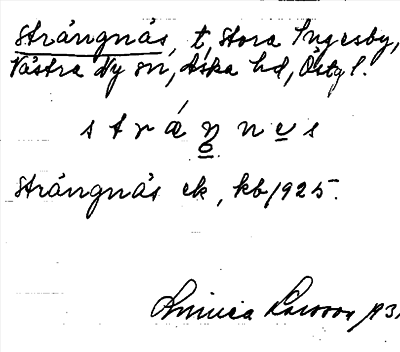 Strängnäs, t, Stora Ingesby,
Västra Ny sn, Aska hd, Östgl.
s t r á ŋ n e s
o
Strängnäs ek, kb 1925.
Larsson 193